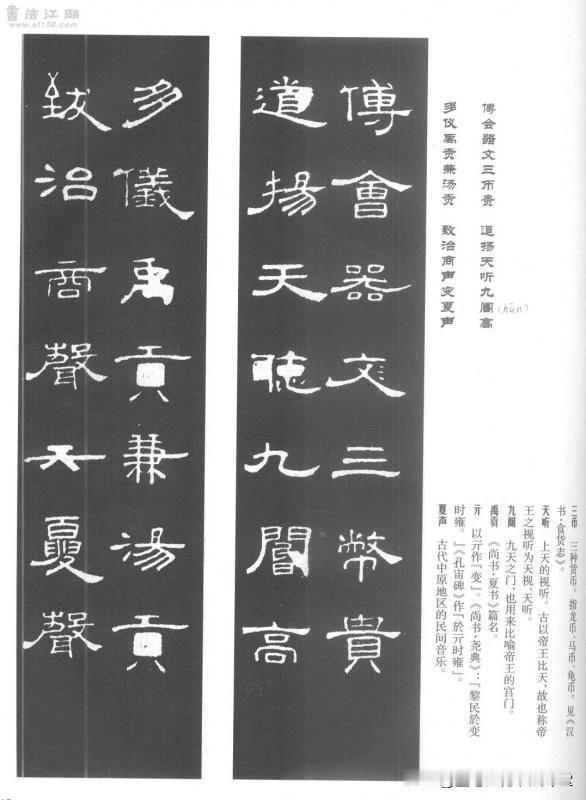 書法江湖
www.sf108.com
傅会器文三币贵 道扬天听九阍高
(hūn)
多仪禹贡兼汤贡 致治商声变夏声
三币 三种货币。指龙币、马币、龟币。见《汉
书·食货志》。
天听 上天的视听。古以帝王比天,故也称帝
王之视听为天视、天听。
九阍 九天之门,也用来比喻帝王的宫门。
禹贡 《尚书·夏书》篇名。
亓 以亓作「变」。《尚书·尧典》:「黎民於变
时雍。」《孔宙碑》作「於亓时雍」。
夏声 古代中原地区的民间音乐。
傅會器文三幣貴
道揚天聽九閽高
多儀禹貢兼湯貢
致治商聲亓夏聲